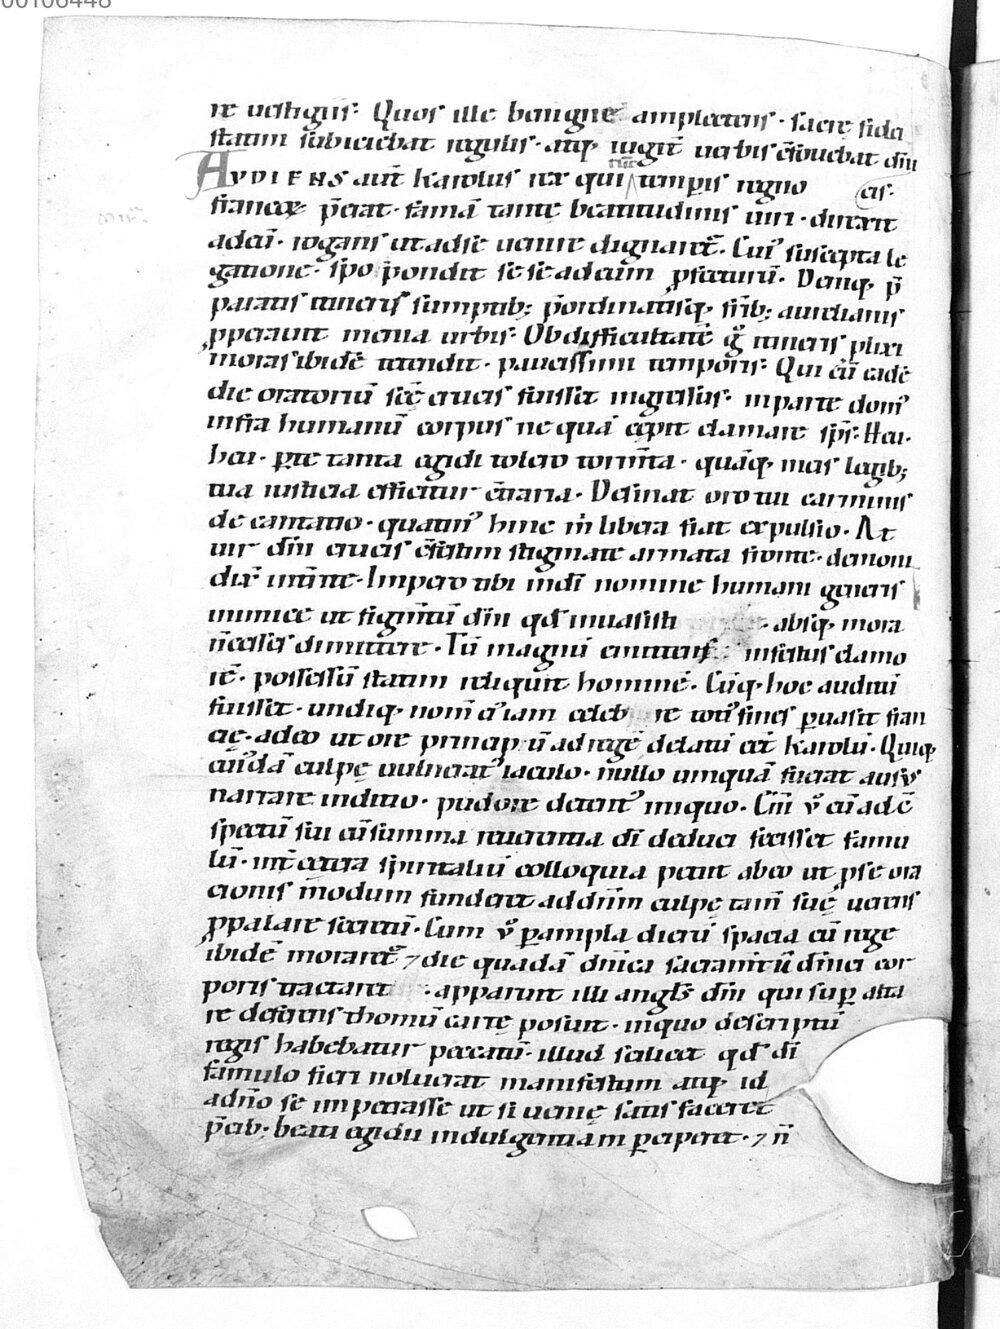 00106448
re uestigiis. Quos ille benigne amplectens. sacrę fidei
statim subiciebat regulis. atq; iugit̄ uerbis c̄fouebat dn̄i
AVDIENS aut̄ karolus rex qui tunc temporis regno cis.
francoꝝ p̄erat. famā tantę beatitudinis uiri. direxit
ad eū. rogans ut ad se uenire dignaret᷑. Cui᷒ suscepta le
gatione. spopondit sese ad eum ꝓfecturū. Deniq; p̄
paratis itineris sumptib; p̄ordinatisq; fr̄ib; aurelianis
ꝓperauit menia urbis. Ob difficultatē g᷑ itineris plixi
moras ibidē tetendit. pauxillum temporis. Qui cū eadē
die oratoriū sc̄ę crucis fuisset ingressus. in parte dom᷒
infra humanū corpus nequā cepit clamare sp̄s. Hei.
hei. p̱te tanta egidi tolero torm̄ta. quāq; meis legib;
tua iusticia efficitur c̄traria. Desinat oro tui carminis
decantatio. quatin᷒ hinc m̄ libera fiat expulsio. At
uir dn̄i crucis c̄festim stigmate armata fronte. demoni
dix̄ int̄rite. Impero tibi in dī nomine humani generis
inimice ut figm̄tū dn̄i qd̄ inuasisti absq; mora
n̄ cesses dimittere. Tū magnū emittens infestus clamo
rē. possessū statim reliquit hominē. Cūq; hoc auditū
fuisset. undiq; nom̄ ei᷒ iam celebre toti᷒ fines ꝑuasit fran
cię. adeo ut ore principū ad regē delatū eēt karolū. Quiq;
cui᷒dā culpę uulnerat᷒ iaculo. nullo umquā fuerat ausus
narrare inditio. pudore detent᷒ iniquo. Cūm v᷑o eū ad c̄
spectū sui cū summa reuerentia dī deduci fecisset famu
lū. int̄ cetera spiritaliū colloquia petiit ab eo ut ꝓ se ora
cionis m̄odum funderet ad dn̄m culpę tam̄ suę uerens
ꝓpalare secretū. Cum v᷑o ꝑampla dierū spacia cū rege
ibidē moraret᷑ ⁊ die quadā dn̄ica sacram̄tū dn̄ici cor
poris tractaret. apparuit illi angl̄s dn̄i qui super alta
re deferens thomū cartę posuit. in quo descriptū
regis habebatur peccatū. illud scilicet qd̄ dī
famulo fieri noluerat manifestum atq; id
a dn̄o se impetrasse ut si uenię satisfaceret
p̄cib; beati egidii indulgentiam ꝑciperet. ⁊ n̄